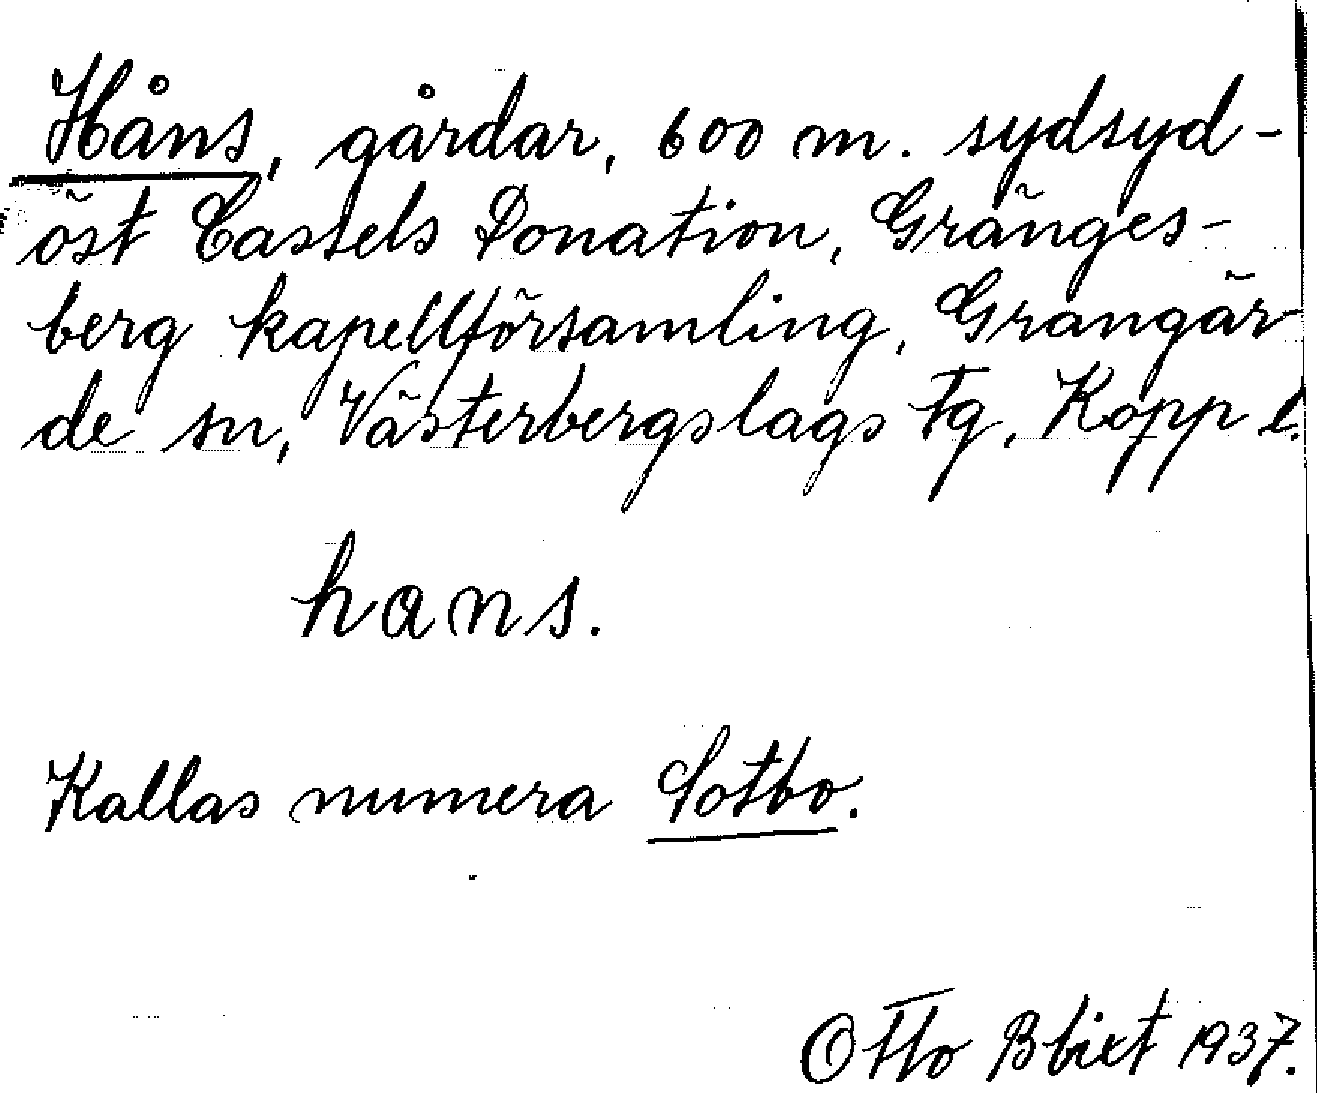 Håns, gårdar, 600 m. sydsyd-
öst Cassels Donation, Gränges-
berg kapellförsamling, Grangär
de sn, Västerbergslags Fg, Kopp l.
hans.
Kallas numera Sotbo.
Otto 1937.